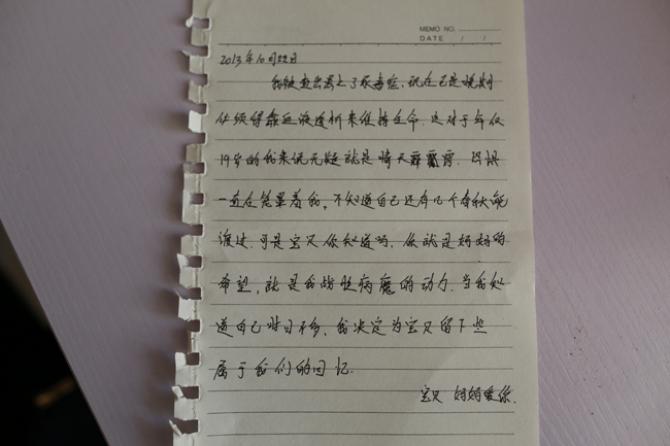 MEMO NO.
DATE / /
2013年10月22日
我被查出患上了尿毒症，现在已是晚期
必须得靠血液透析来维持生命，这对于年仅
19岁的我来说无疑就是晴天霹雳，恐惧
一直在笼罩着我。不知道自己还有几个春秋能
渡过，可是宝贝你知道吗，你就是妈妈的
希望，就是我战胜病魔的动力，当我知
道自己时日不多，我决定为宝贝留下些
属于我们的回忆.
宝贝 妈妈爱你.